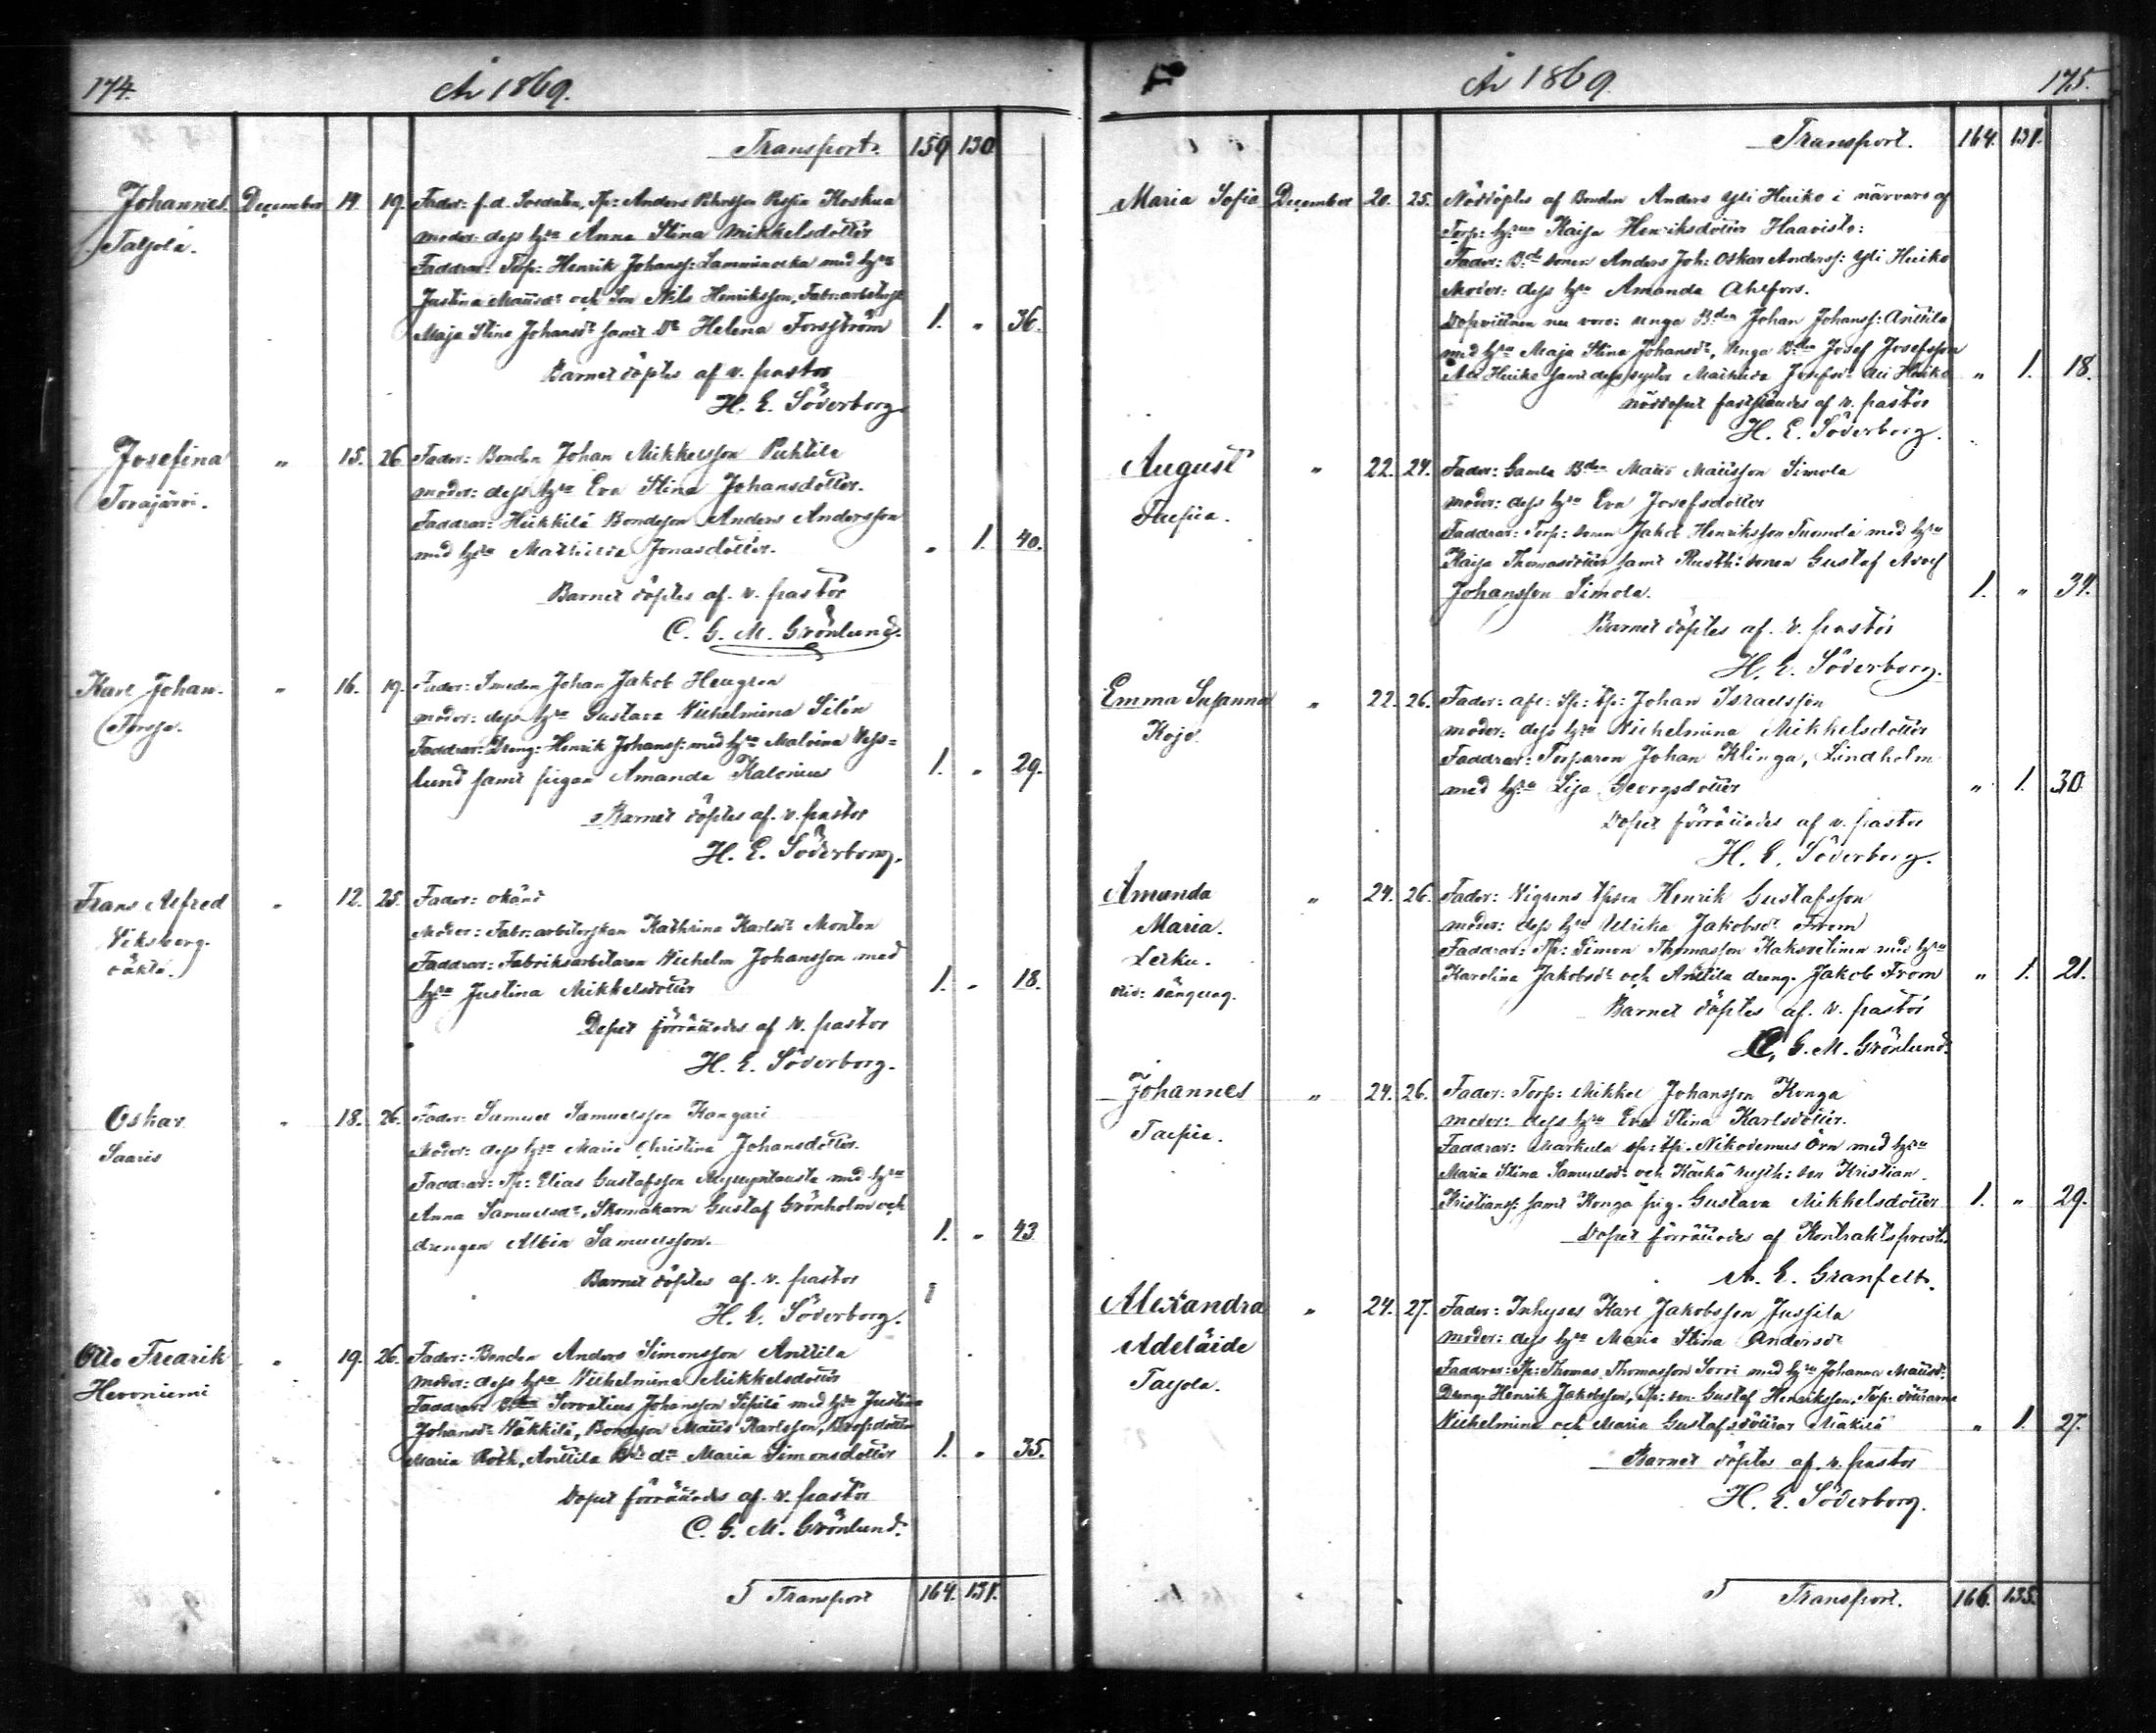 174.
År 1869.
Transport. 159 130
Johannes. December 14. 19. Fader: f.d. Soldaten, Tp: Anders Pehrsson Koskua
Talsola. moder: dess h:u Anna Stina Mikkelsdotter
Faddrar: Torp: Henrik Johanss: med h:u
Justina Mattsd:r och Son Nils Henriksson, Fabr:arbetersk
Maja Stina Johansd:r samt D:r Helena Forsström 1. " 36.
Barnet döptes af v. pastor
H. E. Söderborg
Josefina " 15. 26 Fader: Bonden Johan Mikkelsson Puhtila
Torajärvi. moder: dess h:u Eva Stina Johansdotter.
Faddrar: Heikkilä Bondeson Anders Andersson
med h:u Mathilda Jonasdotter. " 1. 40.
Barnet döptes af. v. pastor
C. G. M. Grönlund.
Karl Johan. " 16. 19. Fader: Smeden Johan Jakob Heugren
Forssa. moder: dess h:u Gustava Wilhelmina Silén
Faddrar: Dreng: Henrik Johanss: med h:u Malvina Vess=
lund samt pigan Amanda Kalonius 1. " 29.
Barnet döptes af. v. pastor
H. E. Söderborg.
Frans Alfred " 12. 25. Fader: okänd
Viksberg. Moder: Fabr:arbeterskan Kathrina Karlsd:r Monten
oäkta. Faddrar: Fabriksarbetaren Wilhelm Johansson med
h:u Justina Mikkelsdotter 1. " 18.
Dopet förrättades af v. pastor
H. E. Söderborg.
Oskar " 18. 26. Fader: Samuel Samuelsson Kangari
Saaris Moder: dess h:u Maria Christina Johansdotter.
Faddrar: Tp: Elias Gustafsson med h:u
Anna Samuelsd:r, Skomakarn Gustaf Grönholm och
drengen Albin Samuelsson. 1. " 43
Barnet döptes af. v. pastor
H. E. Söderborg.
Otto Fredrik " 19. 26. Fader: Bonden Anders Simonsson Anttila
Hevoniemi moder: dess h:u Wilhelmina Mikkelsdotter
Faddrar: Servatius Johansson Sipilä med h:u Justina
Johansd:r Häkkilä, Bondeson Matts Karlsson,
Maria Roth, Anttila Maria Simonsdotter 1. " 35.
Dopet förrättades af. v. pastor
C. G. M. Grönlund.
Transport 164. 131.
År 1869.
175.
Transport. 164. 131.
Maria Sofia December 20. 25. Nöddöptes af Bonden Anders Yli Heiko i närvaro af
Torp: h:un Kaisa Henriksdotter Haavisto:
Fader: B:de sonen Anders Joh: Oskar Anderss: Yli Heiko
Moder: dess h:u Amanda Ahlfors.
Dopvittnen nu voro: unga B:den Johan Johanss: Anttila
med h:u Maja Stina Johansd:r, Unga B:den Josef Josefsson
Ali Heiko samt dess syster Mathilda Josefsd:r Ali Heiko " 1. 18.
nöddopet fastställdes af v. pastor
H. E. Söderborg.
August " 22. 24. Fader: Gamla B:den Matts Mattsson Simola
Taipia. moder: dess h:u Eva Josefsdotter
Faddrar: Torp: sonen Jakob Henriksson Tuomola med h:u
Kaisa Thomasdotter samt Rusth: sonen Gustaf Adolf
Johansson Simola. 1. " 34.
Barnet döptes af. v. pastor
H. E. Söderborg.
Emma Susanna " 22. 26. Fader: afl: Sp: tp: Johan Israelsson
Kojo. moder: dess h:u Wilhelmina Mikkelsdotter
Faddrar: Torparen Johan Klinga, Lindholm
med h:u Lisa Georgsdotter " 1. 30
Dopet förrättades af v. pastor
H. E. Söderborg.
Amanda " 24. 26. Fader: Vigrens tpson Henrik Gustafsson
Maria. moder: dess h:u Ulrika Jakobsd:r From
Leiku. Faddrar: Tp: Simon Thomasson Kaksvetinen med h:u
Karolina Jakobsd:r och Anttila dreng. Jakob From " 1. 21.
Barnet döptes af. v. pastor
C. G. M. Grönlund.
Johannes " 24. 26. Fader: Torp: Mikkel Johansson Konga
Taipia. moder: dess h:u Eva Stina Karlsdotter.
Faddrar: Markula sp: tp. Nikodemus Örn med h:u
Maria Stina Samuelsd:r och rusth: son Kristian
Kristianss: samt Konga pig. Gustava Mikkelsdotter 1. " 29.
Dopet förrättades af Kontraktsprosten
A. E. Granfelt.
Alexandra " 24. 27. Fader: Inhyses Karl Jakobsson Jussila
Adeläide moder: dess h:u Maria Stina Andersd:r
Talsola. Faddrar: Tp: Thomas Thomasson Sorri med h:u Johanna Mattsd:r
Dreng: Henrik Jakobsson, Tp: son Gustaf Henriksson, Torp: döttrarna
Wilhelmina och Maria Gustafsdöttrar Mäkilä " 1. 27.
Barnet döptes af. v. pastor
H. E. Söderborg.
Transport. 166. 135.